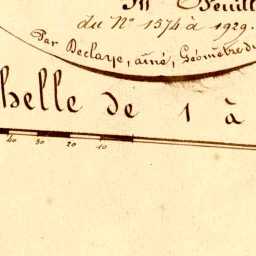 du N° 1574 à 1929.
Par Declaye, aîné, Géomètre du
helle de 1 à
40 30 20 10